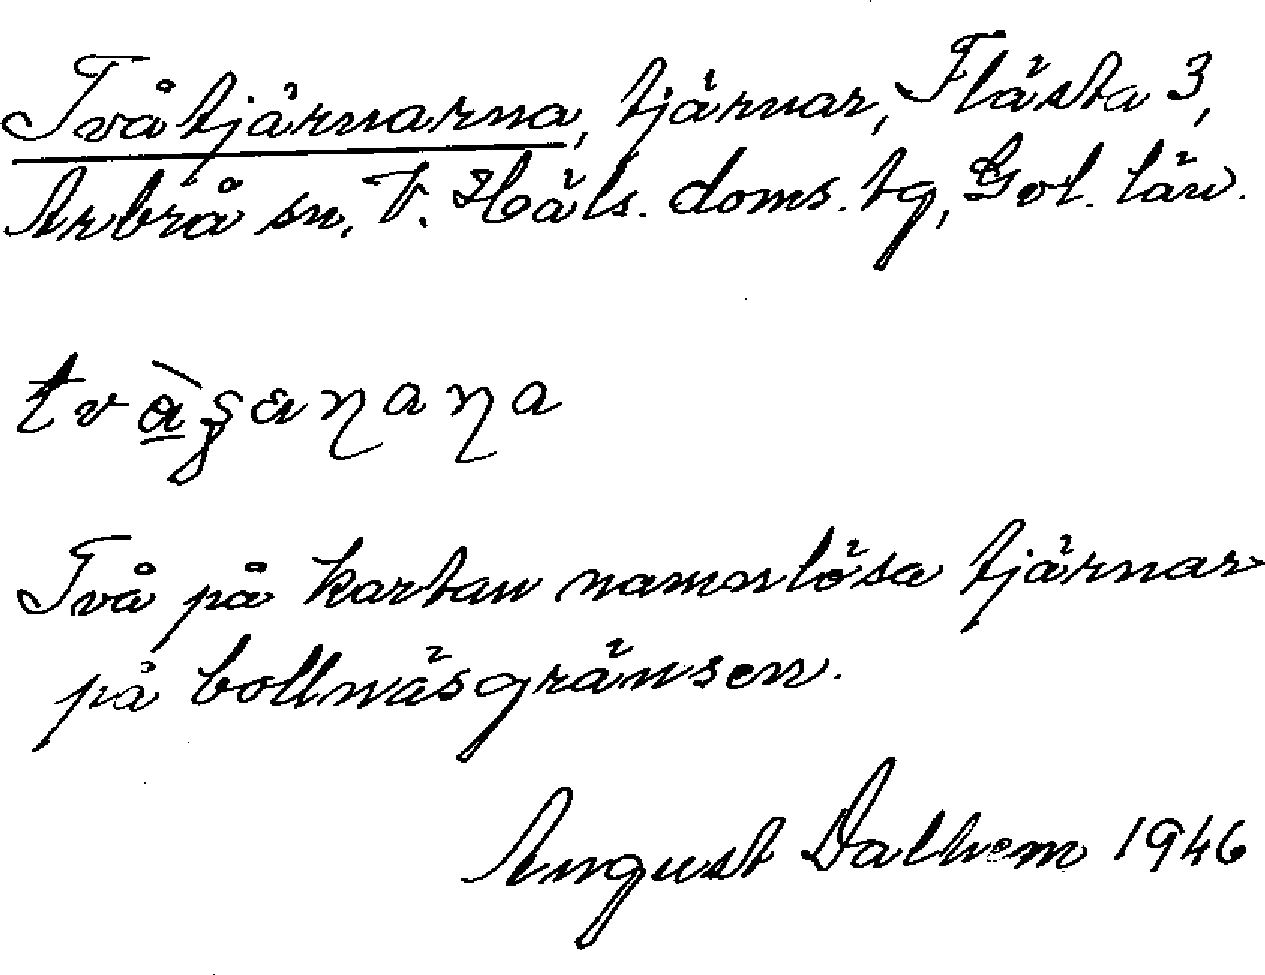 Tvåtjärnarna, tjärnar, Flästa 3,
Arbrå sn, V. Häls. doms. tg, Gvl. län.
Två på kartan namnlösa tjärnar
på bollnäsgränsen.
August Dalhem 1946